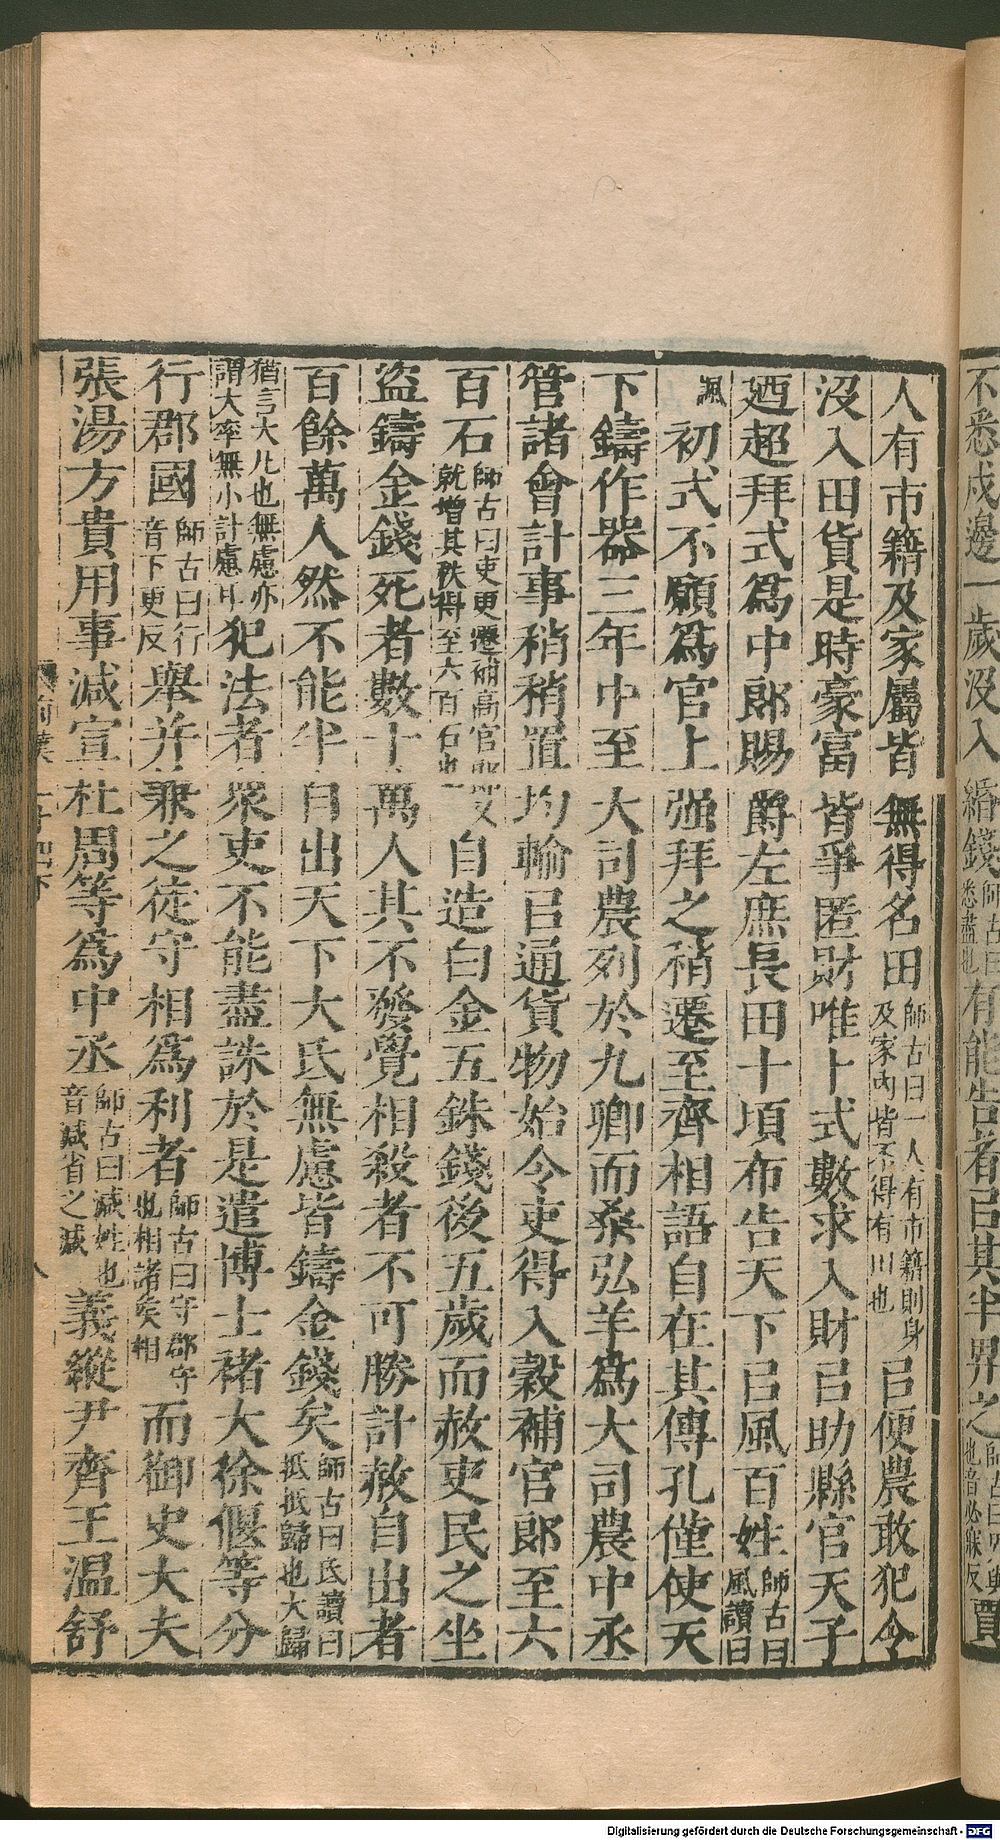 不悉戍邊一歲沒入緡錢師古曰悉盡也有能告者㠯其半畀之也音必寐反賈
人有市籍及家屬皆無得名田師古曰一人有市籍則身及家內皆不得有田也㠯便農敢犯令
沒入田貨是時豪富皆爭匿財唯卜式數求入財㠯助縣官天子
廼超拜式爲中郎賜爵左庶長田十頃布告天下㠯風百姓師古曰風讀曰
諷初式不願爲官上强拜之稍遷至齊相語自在其傳孔僅使天
下鑄作器三年中至大司農列於九卿而桑弘羊爲大司農中丞
管諸會計事稍稍置均輸㠯通貨物始令吏得入穀補官郎至六
百石師古曰吏更遷補高官郎又就增其秩得至六百石也自造白金五銖錢後五歲而赦吏民之坐
盜鑄金錢死者數十萬人其不發覺相殺者不可勝計赦自出者
百餘萬人然不能半自出天下大氐無慮皆鑄金錢矣師古曰氐讀曰抵抵歸也大歸
猶言大凡也無慮亦謂大率無小計慮耳犯法者衆吏不能盡誅於是遣博士褚大徐偃等分
行郡國師古曰行音下更反舉并兼之徒守相爲利者師古曰守郡守也相諸矦相而御史大夫
張湯方貴用事減宣杜周等爲中丞師古曰減姓也音減省之減義縱尹齊王温舒
Digitalisierung gefördert durch die Deutsche Forschungsgemeinschaft - DFG